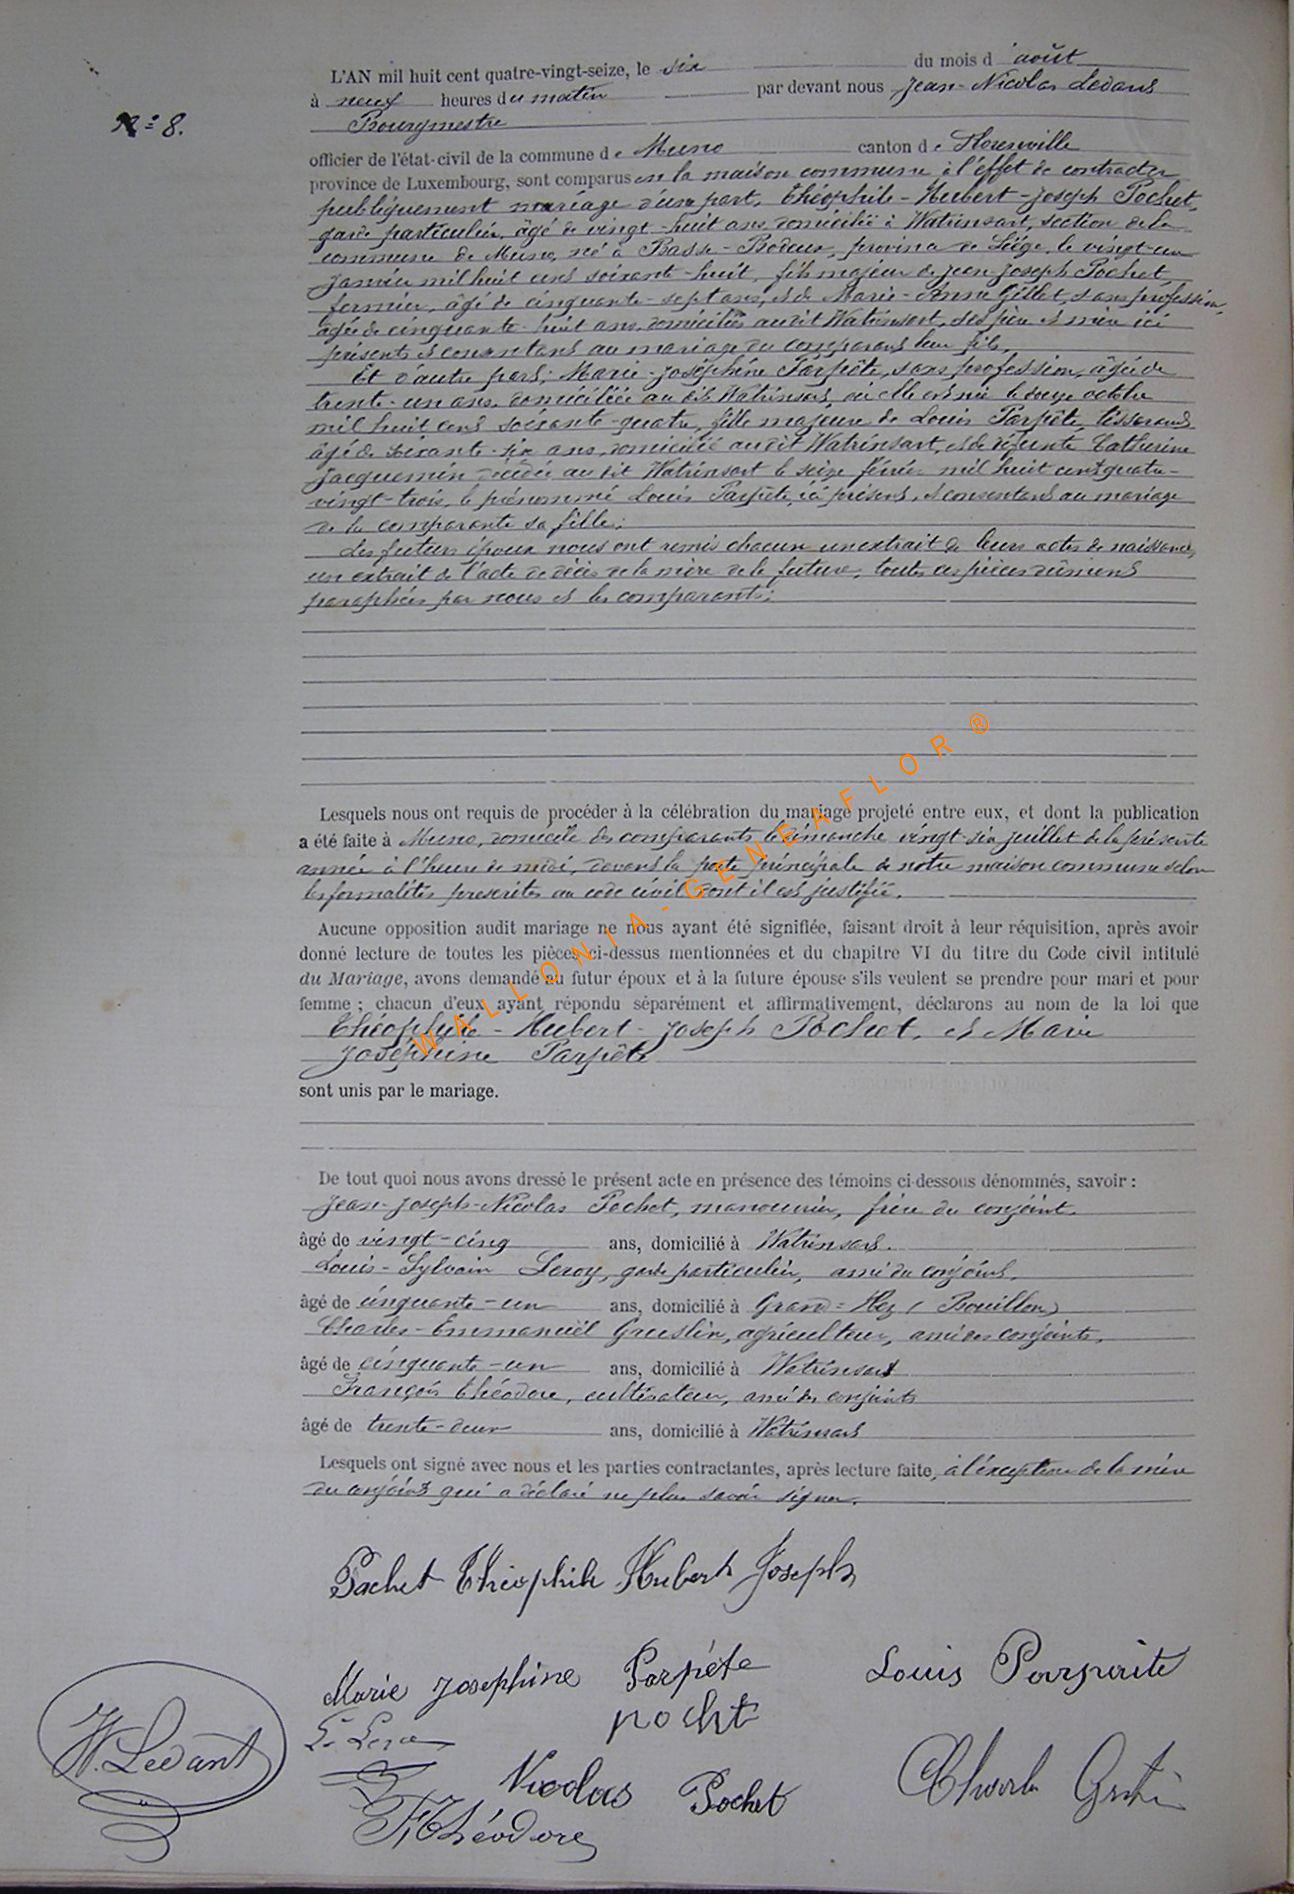 L'AN mil huit cent quatre-vingt-seize, le six du mois d'août
à neuf heures du matin par devant nous Jean-Nicolas Ledant
N° 8.
Bourgmestre
officier de l'état-civil de la commune de Muno canton de Florenville
province de Luxembourg, sont comparus en la maison commune à l'effet de contracter
publiquement mariage d'une part, Théophile-Hubert-Joseph Pochet,
garde particulier, âgé de vingt-huit ans, domicilié à Watrinsart, section de la
commune de Muno, né à Basse-Bodeux, province de Liége, le vingt-un
janvier mil huit cent soixante-huit, fils majeur de Jean-Joseph Pochet,
fermier, âgé de cinquante-sept ans, et de Marie-Anne Gillet, sans profession,
âgée de cinquante-huit ans, domiciliés audit Watrinsart, ses père et mère ici
présents et consentant au mariage du comparant leur fils,
Et d'autre part; Marie-Joséphine Parpète, sans profession, âgée de
trente-un ans, domiciliée au dit Watrinsart, où elle est née le seize octobre
mil huit cent soixante-quatre, fille majeure de Louis Parpète, tisserand,
âgé de soixante-six ans, domicilié audit Watrinsart, et de défunte Catherine
Jacquemin, décédée au dit Watrinsart le seize février mil huit cent quatre-
vingt-trois, le prénommé Louis Parpète, ici présent, et consentant au mariage
de la comparante sa fille;
Les futurs époux nous ont remis chacun un extrait de leurs actes de naissance,
un extrait de l'acte de décès de la mère de la future, toutes ces pièces dûment
paraphées par nous et les comparants;
Lesquels nous ont requis de procéder à la célébration du mariage projeté entre eux, et dont la publication
a été faite à Muno, domicile des comparants le dimanche vingt-six juillet de la présente
année à l'heure de midi, devant la porte principale de notre maison commune selon
les formalités prescrites au code civil dont il est justifié.
Aucune opposition audit mariage ne nous ayant été signifiée, faisant droit à leur réquisition, après avoir
donné lecture de toutes les pièces ci-dessus mentionnées et du chapitre VI du titre du Code civil intitulé
du Mariage, avons demandé au futur époux et à la future épouse s'ils veulent se prendre pour mari et pour
femme ; chacun d'eux ayant répondu séparément et affirmativement, déclarons au nom de la loi que
Théophile-Hubert-Joseph Pochet, et Marie
Joséphine Parpète
sont unis par le mariage.
WALLONIA-GENEAFLOR®
De tout quoi nous avons dressé le présent acte en présence des témoins ci-dessous dénommés, savoir :
Jean-Joseph-Nicolas Pochet, manouvrier, frère du conjoint.
âgé de vingt-cinq ans, domicilié à Watrinsart.
Louis-Sylvain Leroy, garde particulier, ami du conjoint,
âgé de cinquante-un ans, domicilié à Grand-Hez (Bouillon)
Charles-Emmanuël Gruslin, agriculteur, ami des conjoints,
âgé de cinquante-un ans, domicilié à Watrinsart
François Théodore, cultivateur, ami des conjoints
âgé de trente-deux ans, domicilié à Watrinsart
Lesquels ont signé avec nous et les parties contractantes, après lecture faite, à l'exception de la mère
du conjoint qui a déclaré ne plus savoir signer.
Pochet Théophile Hubert Joseph
Marie Josephine Parpéte Louis Parpaite
pochet
L. Leroy
N. Ledant
Nicolas Pochet
F. Théodore